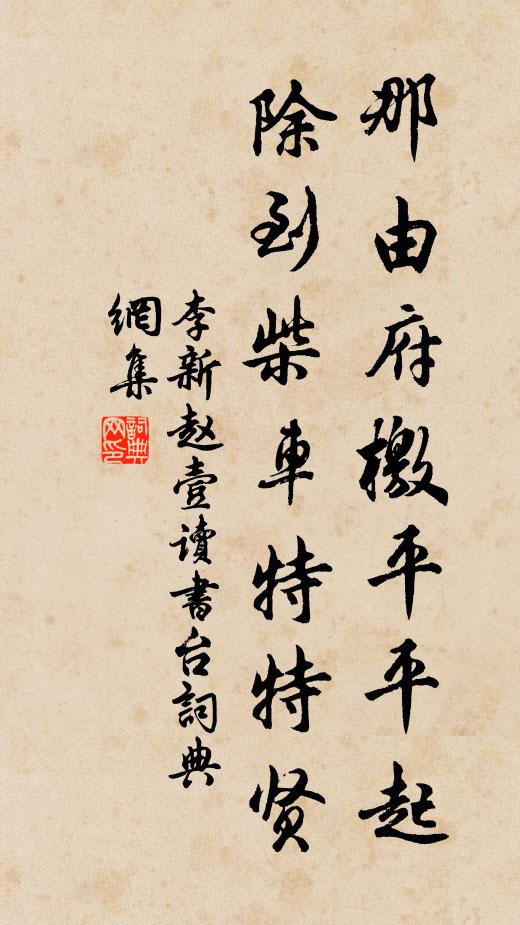 那由府檄平平起
除到柴車特特贤
李新赵壹讀書台詞典
網集
詞典
网印